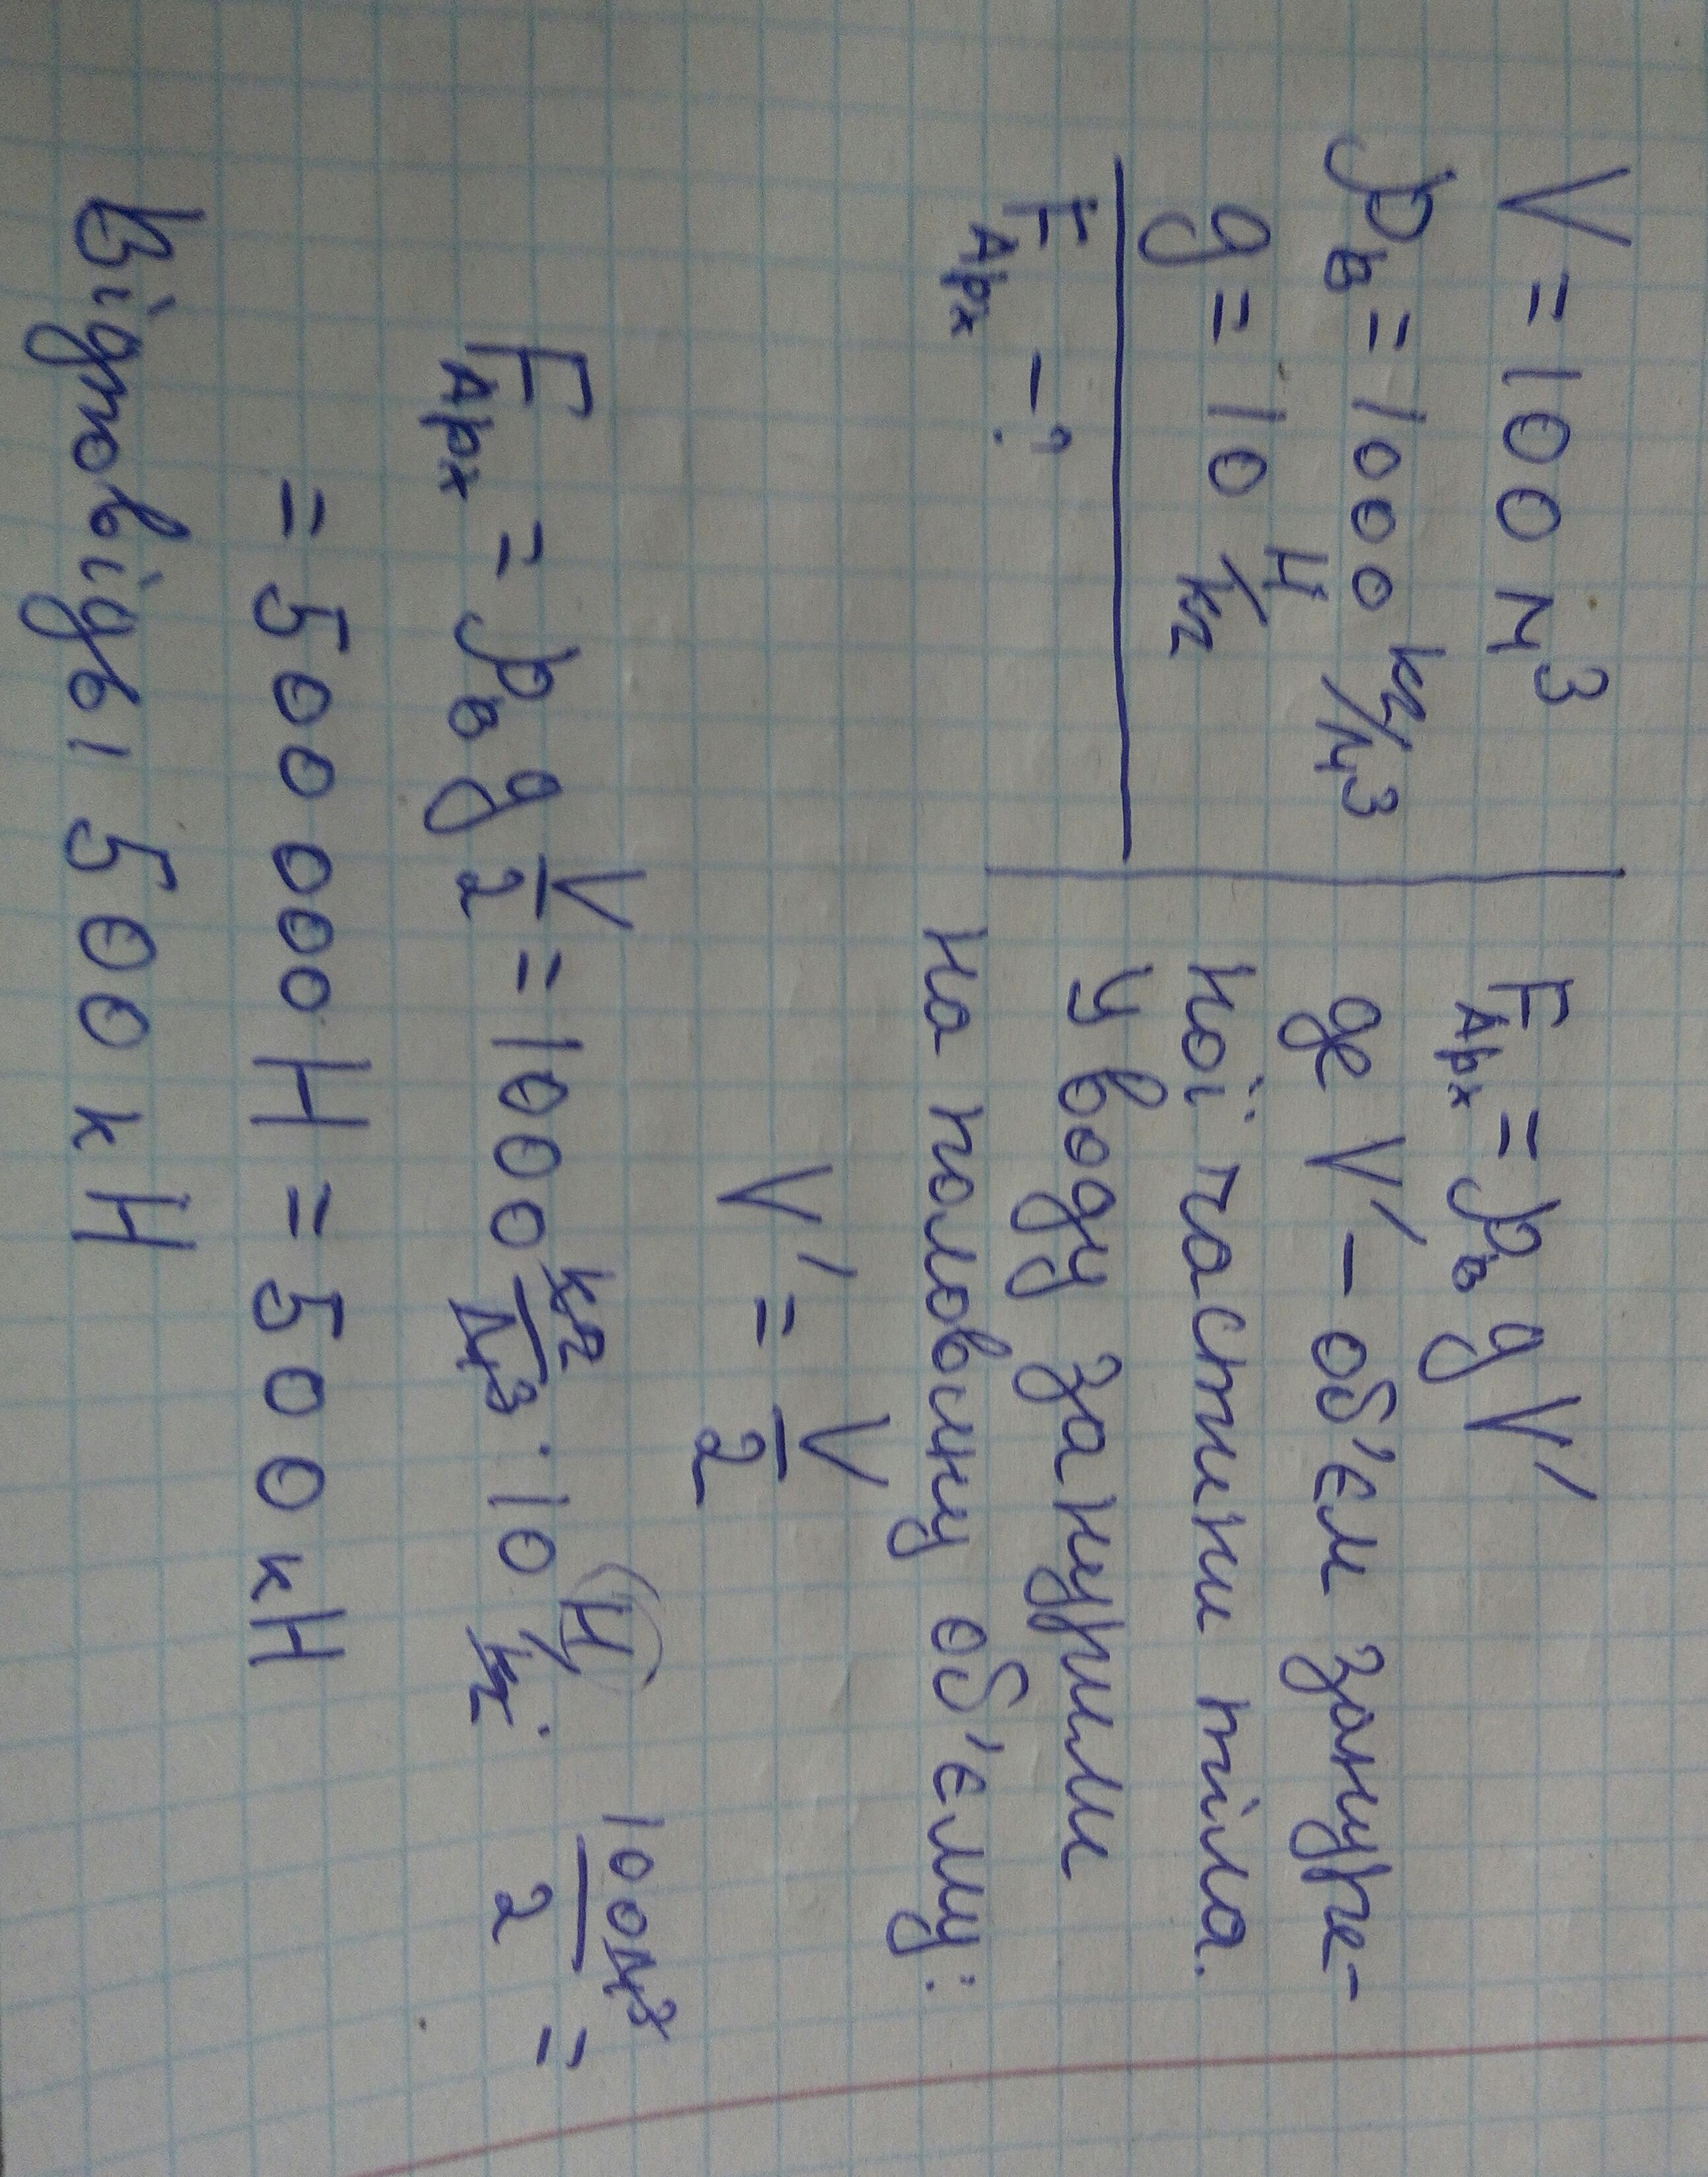 V = 100 м³
ρв = 1000 кг/м³
g = 10 Н/кг
FАрх – ?
FАрх = ρв g V′
де V′ – об'єм занурe-
ної частини тіла.
У воду занурили
на половину об'єму:
V′ = V/2
FАрх = ρв g V/2 = 1000 кг/м³ · 10 Н/кг · 100м³/2 =
= 500 000 Н = 500 кН
Відповідь: 500 кН